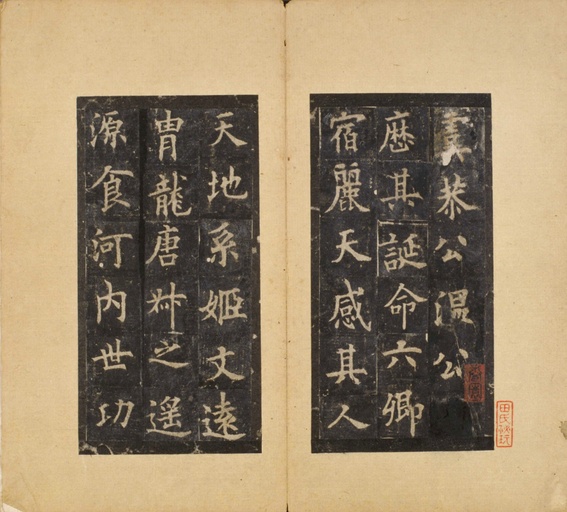 恭公温公
歷其誕命六卿
宿麗天感其人
天地系姬文遠
胄龍唐叔之遥
源食河内世功